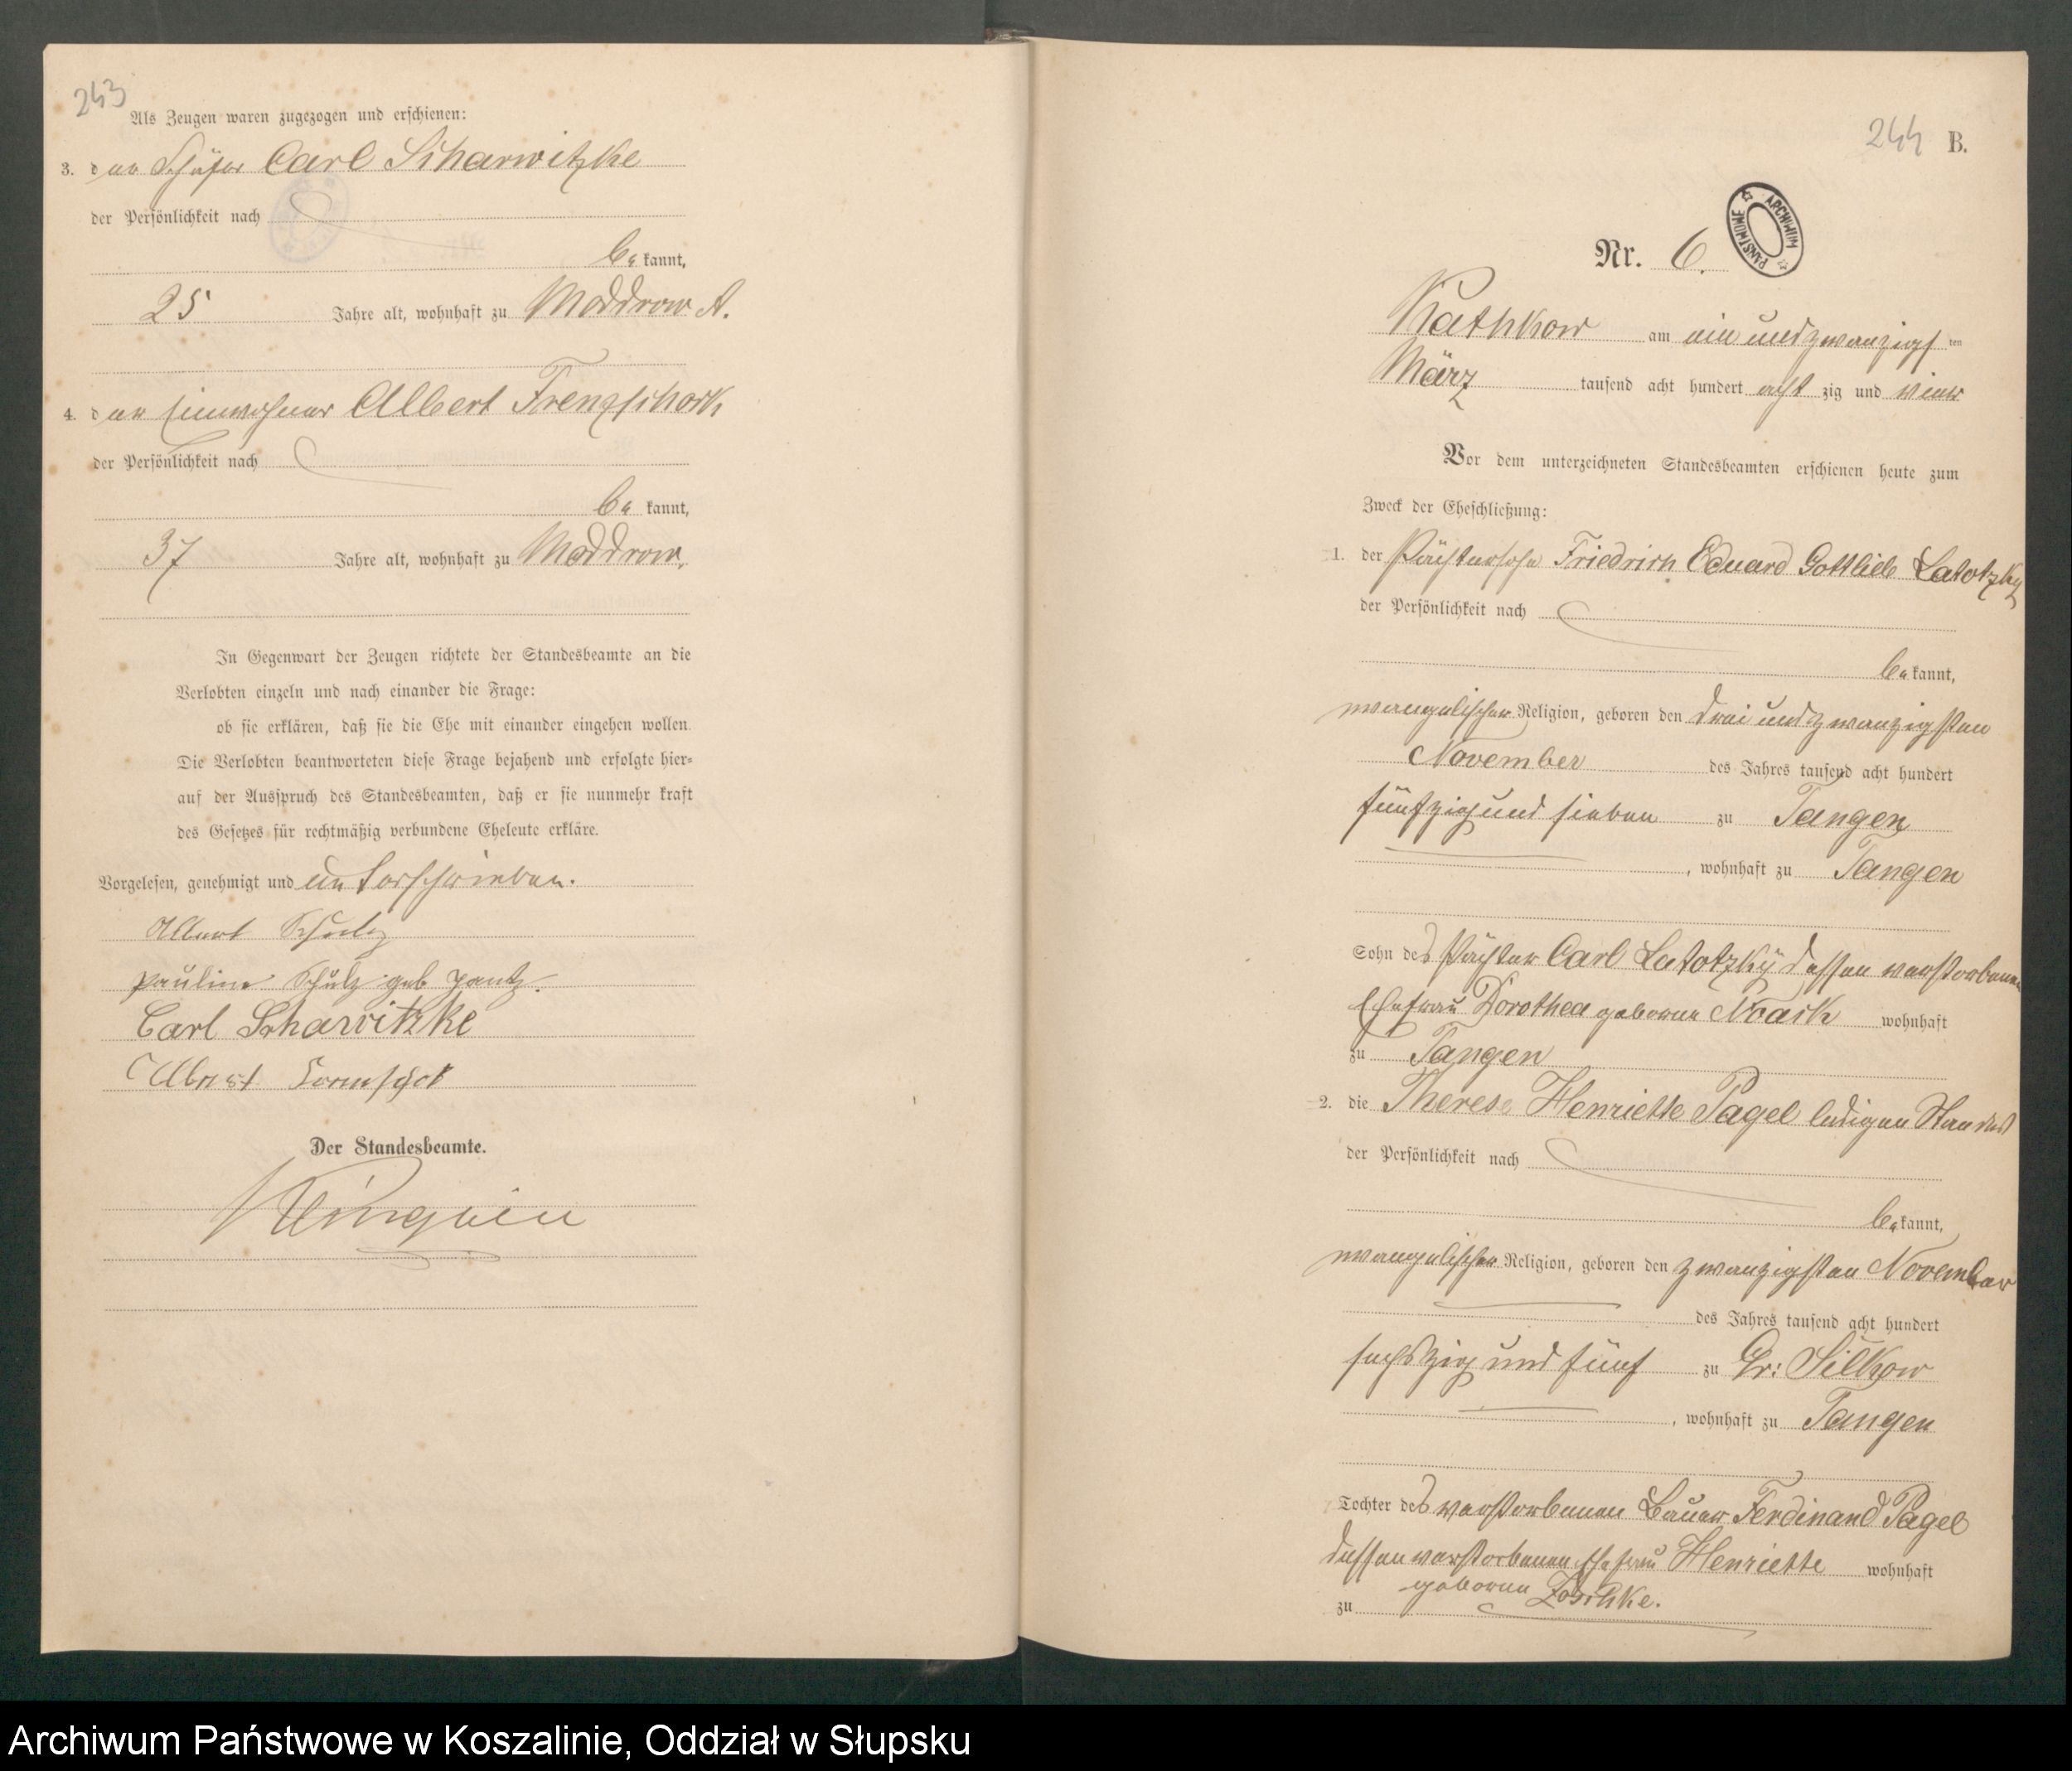 243
Als Zeugen waren zugezogen und erschienen:
3. der Schäfer Carl Scharwitzke
der Persönlichkeit nach
be kannt,
25 Jahre alt, wohnhaft zu Moddrow A.
4. der Einwohner Albert Frenzschock
der Persönlichkeit nach
be kannt,
37 Jahre alt, wohnhaft zu Moddrow.
In Gegenwart der Zeugen richtete der Standesbeamte an die
Verlobten einzeln und nach einander die Frage:
ob sie erklären, daß sie die Ehe mit einander eingehen wollen.
Die Verlobten beantworteten diese Frage bejahend und erfolgte hier-
auf der Ausspruch des Standesbeamten, daß er sie nunmehr kraft
des Gesetzes für rechtmäßig verbundene Eheleute erkläre.
Vorgelesen, genehmigt und unterschrieben.
Albert Schulz
Pauline Schulz geb Jantz.
Carl Scharwitzke
Der Standesbeamte.
244 B.
Nr. 6.
ARCHIWUM PAŃSTWOWE
Rathkow am ein und zwanzigs ten
März tausend acht hundert acht zig und vier
Vor dem unterzeichneten Standesbeamten erschienen heute zum
Zweck der Eheschließung:
1. der Pächtersohn Friedrich Eduard Gottlieb Latotzky
der Persönlichkeit nach
be kannt,
evangelischer Religion, geboren den drei und zwanzigsten
November des Jahres tausend acht hundert
fünfzig und sieben zu Tangen
, wohnhaft zu Tangen
Sohn des Pächter Carl Latotzky dessen verstorbenen
Ehefrau Dorothea geborne Noack wohnhaft
zu Tangen
2. die Therese Henriette Pagel ledigen Standes
der Persönlichkeit nach
be kannt,
evangelischer Religion, geboren den zwanzigsten November
des Jahres tausend acht hundert
sechszig und fünf zu Gr: Silkow
, wohnhaft zu Tangen
Tochter des verstorbenen Bauer Ferdinand Pagel
dessen verstorbenen Ehefrau Henriette wohnhaft
geborne Zoschke.
zu
Archiwum Państwowe w Koszalinie, Oddział w Słupsku